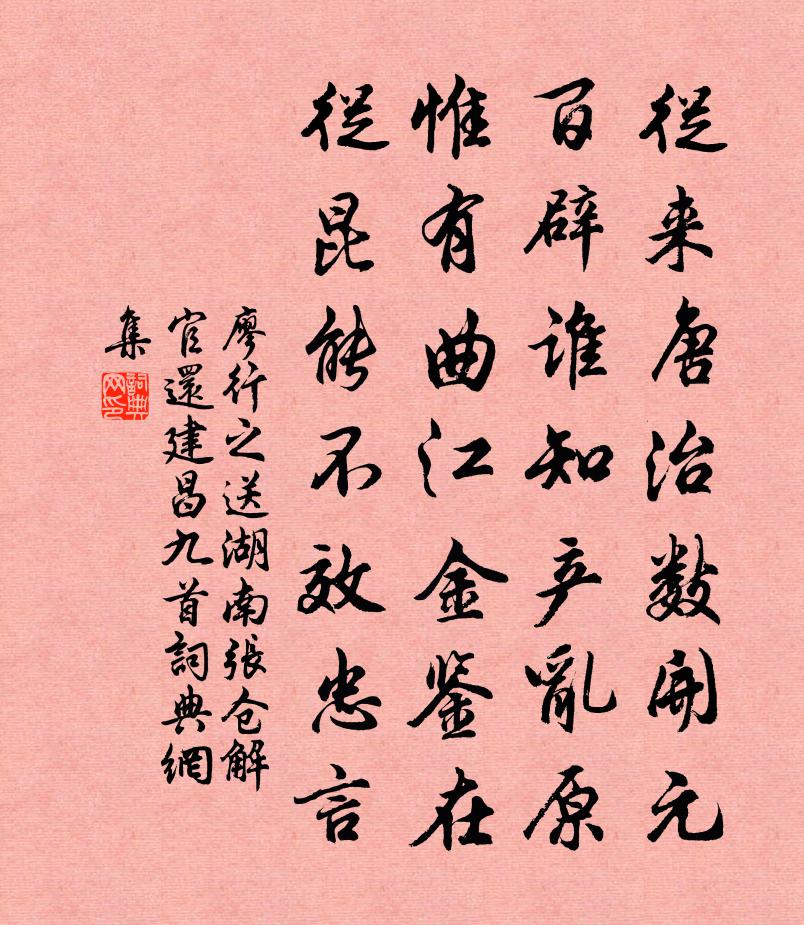 從来唐治數開元
百辟谁知产亂原
惟有曲江金鉴在
從昆能不效忠言
廖行之送湖南張仓解
官還建昌九首詞典網
集
詞典網印